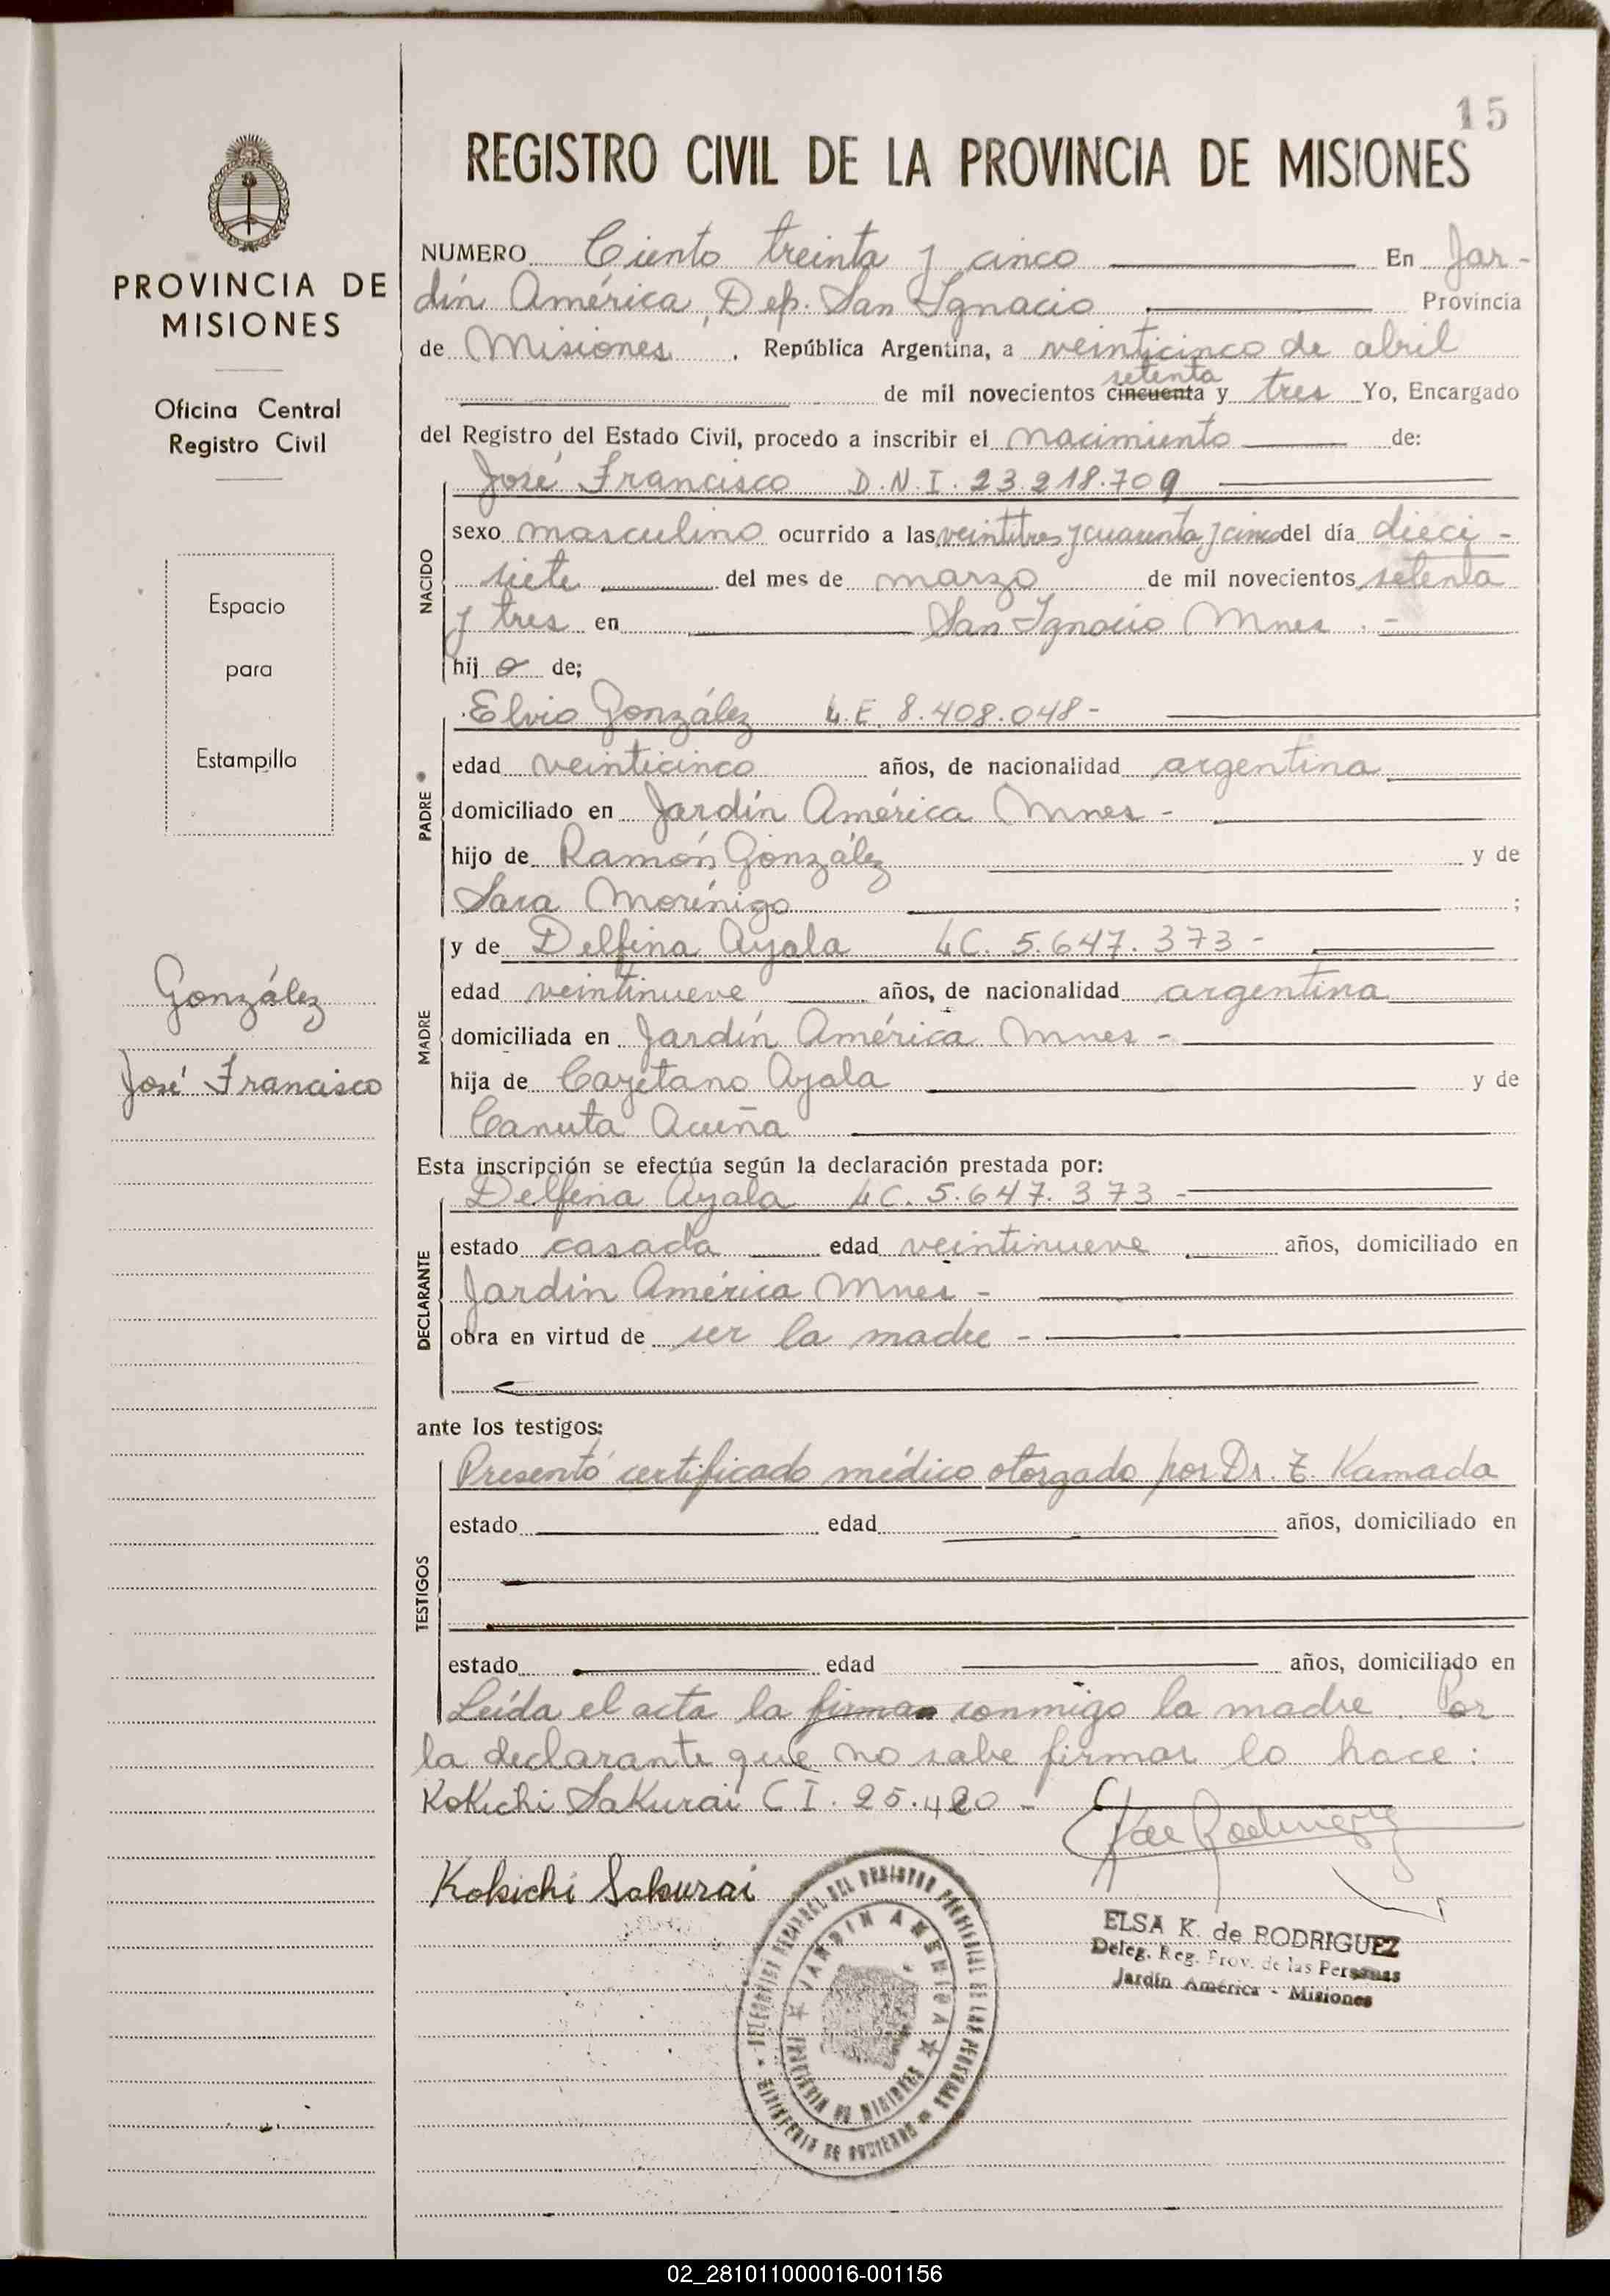 15
REGISTRO CIVIL DE LA PROVINCIA DE MISIONES
PROVINCIA DE
MISIONES
Oficina Central
Registro Civil
Espacio
para
Estampilla
González
José Francisco
NUMERO Ciento treinta y cinco En Jar-
dín América, Dep. San Ignacio Provincia
de Misiones. República Argentina, a veinticinco de abril
setenta
de mil novecientos cincuenta y tres Yo, Encargado
del Registro del Estado Civil, procedo a inscribir el nacimiento de:
José Francisco D.N.I. 23.218.709
NACIDO
sexo masculino ocurrido a las veintitres y cuarenta y cinco del día dieci-
siete del mes de marzo de mil novecientos setenta
y tres en San Ignacio Mnes.-
hijo de;
PADRE
Elvio González L.E. 8.408.048-
edad veinticinco años, de nacionalidad argentina
domiciliado en Jardín América Mnes-
hijo de Ramón González y de
Sara Morínigo ;
MADRE
y de Delfina Ayala LC. 5.647.373-
edad veintinueve años, de nacionalidad argentina
domiciliada en Jardín América Mnes-
hija de Cayetano Ayala y de
Canuta Acuña
Esta inscripción se efectúa según la declaración prestada por:
DECLARANTE
Delfina Ayala LC. 5.647.373-
estado casada edad veintinueve años, domiciliado en
Jardín América Mnes-
obra en virtud de ser la madre-
ante los testigos:
TESTIGOS
Presentó certificado médico otorgado por Dr. Z Kamada
estado edad años, domiciliado en
estado edad años, domiciliado en
Leída el acta la firman conmigo la madre. Por
la declarante que no sabe firmar lo hace:
Kokichi Sakurai C I. 25.420-
Kokichi Sakurai
JARDIN AMERICA
PROVINCIA DE MISIONES
MINISTERIO DE GOBIERNO
ELSA K. de RODRIGUEZ
Deleg. Reg. Prov. de las Personas
Jardín América - Misiones
02_281011000016-001156